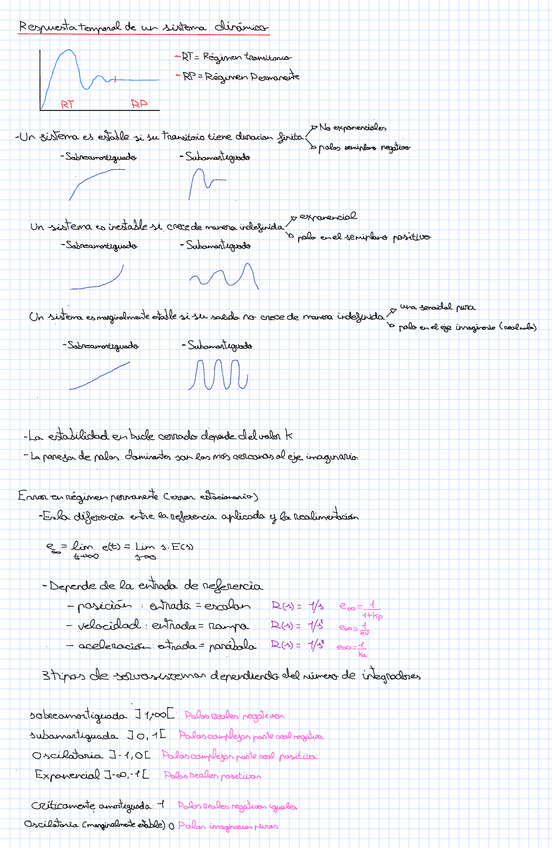 Respuesta temporal de un sistema dinámico
- RT = Régimen transitorio
- RP = Régimen Permanente
RT RP
- Un sistema es estable si su transitorio tiene duracion finita
No exponenciales
polos semiplano negativo
- Sobreamortiguado - Subamortiguado
Un sistema es inestable si crece de manera indefinida
exponencial
polo en el semiplano positivo
- Sobreamortiguado - Subamortiguado
Un sistema es marginalmente estable si su salida no crece de manera indefinida
una senoidal pura
polo en el eje imaginario (real nula)
- Sobreamortiguado - Subamortiguado
- La estabilidad en bucle cerrado depende del valor K
- La pareja de polos dominantes son los mas cercanos al eje imaginario.
Error en régimen permanente (error estacionario)
- Es la diferencia entre la referencia aplicada y la realimentación
e∞ = lim t→∞ e(t) = Lim s→0 s.E(s)
- Depende de la entrada de referencia
- posición : entrada = escalon R(s) = 1/s e∞ = 1/1+kp
- velocidad : entrada = rampa R(s) = 1/s² e∞ = 1/kv
- aceleración: entrada = parábola R(s) = 1/s³ e∞ = 1/ka
3 tipos de servosistemas dependiendo del número de integradores
sobreamortiguada ]1,∞[ Polos Reales negativos
subamortiguada ]0,1[ Polos complejos parte real negativa
Oscilatoria ]-1,0[ Polos complejos parte real positiva
Exponencial ]-∞,-1[ Polos Reales positivos
Críticamente amortiguada 1 Polos Reales negativos iguales
Oscilatoria (marginalmente estable) 0 Polos imaginarios puros